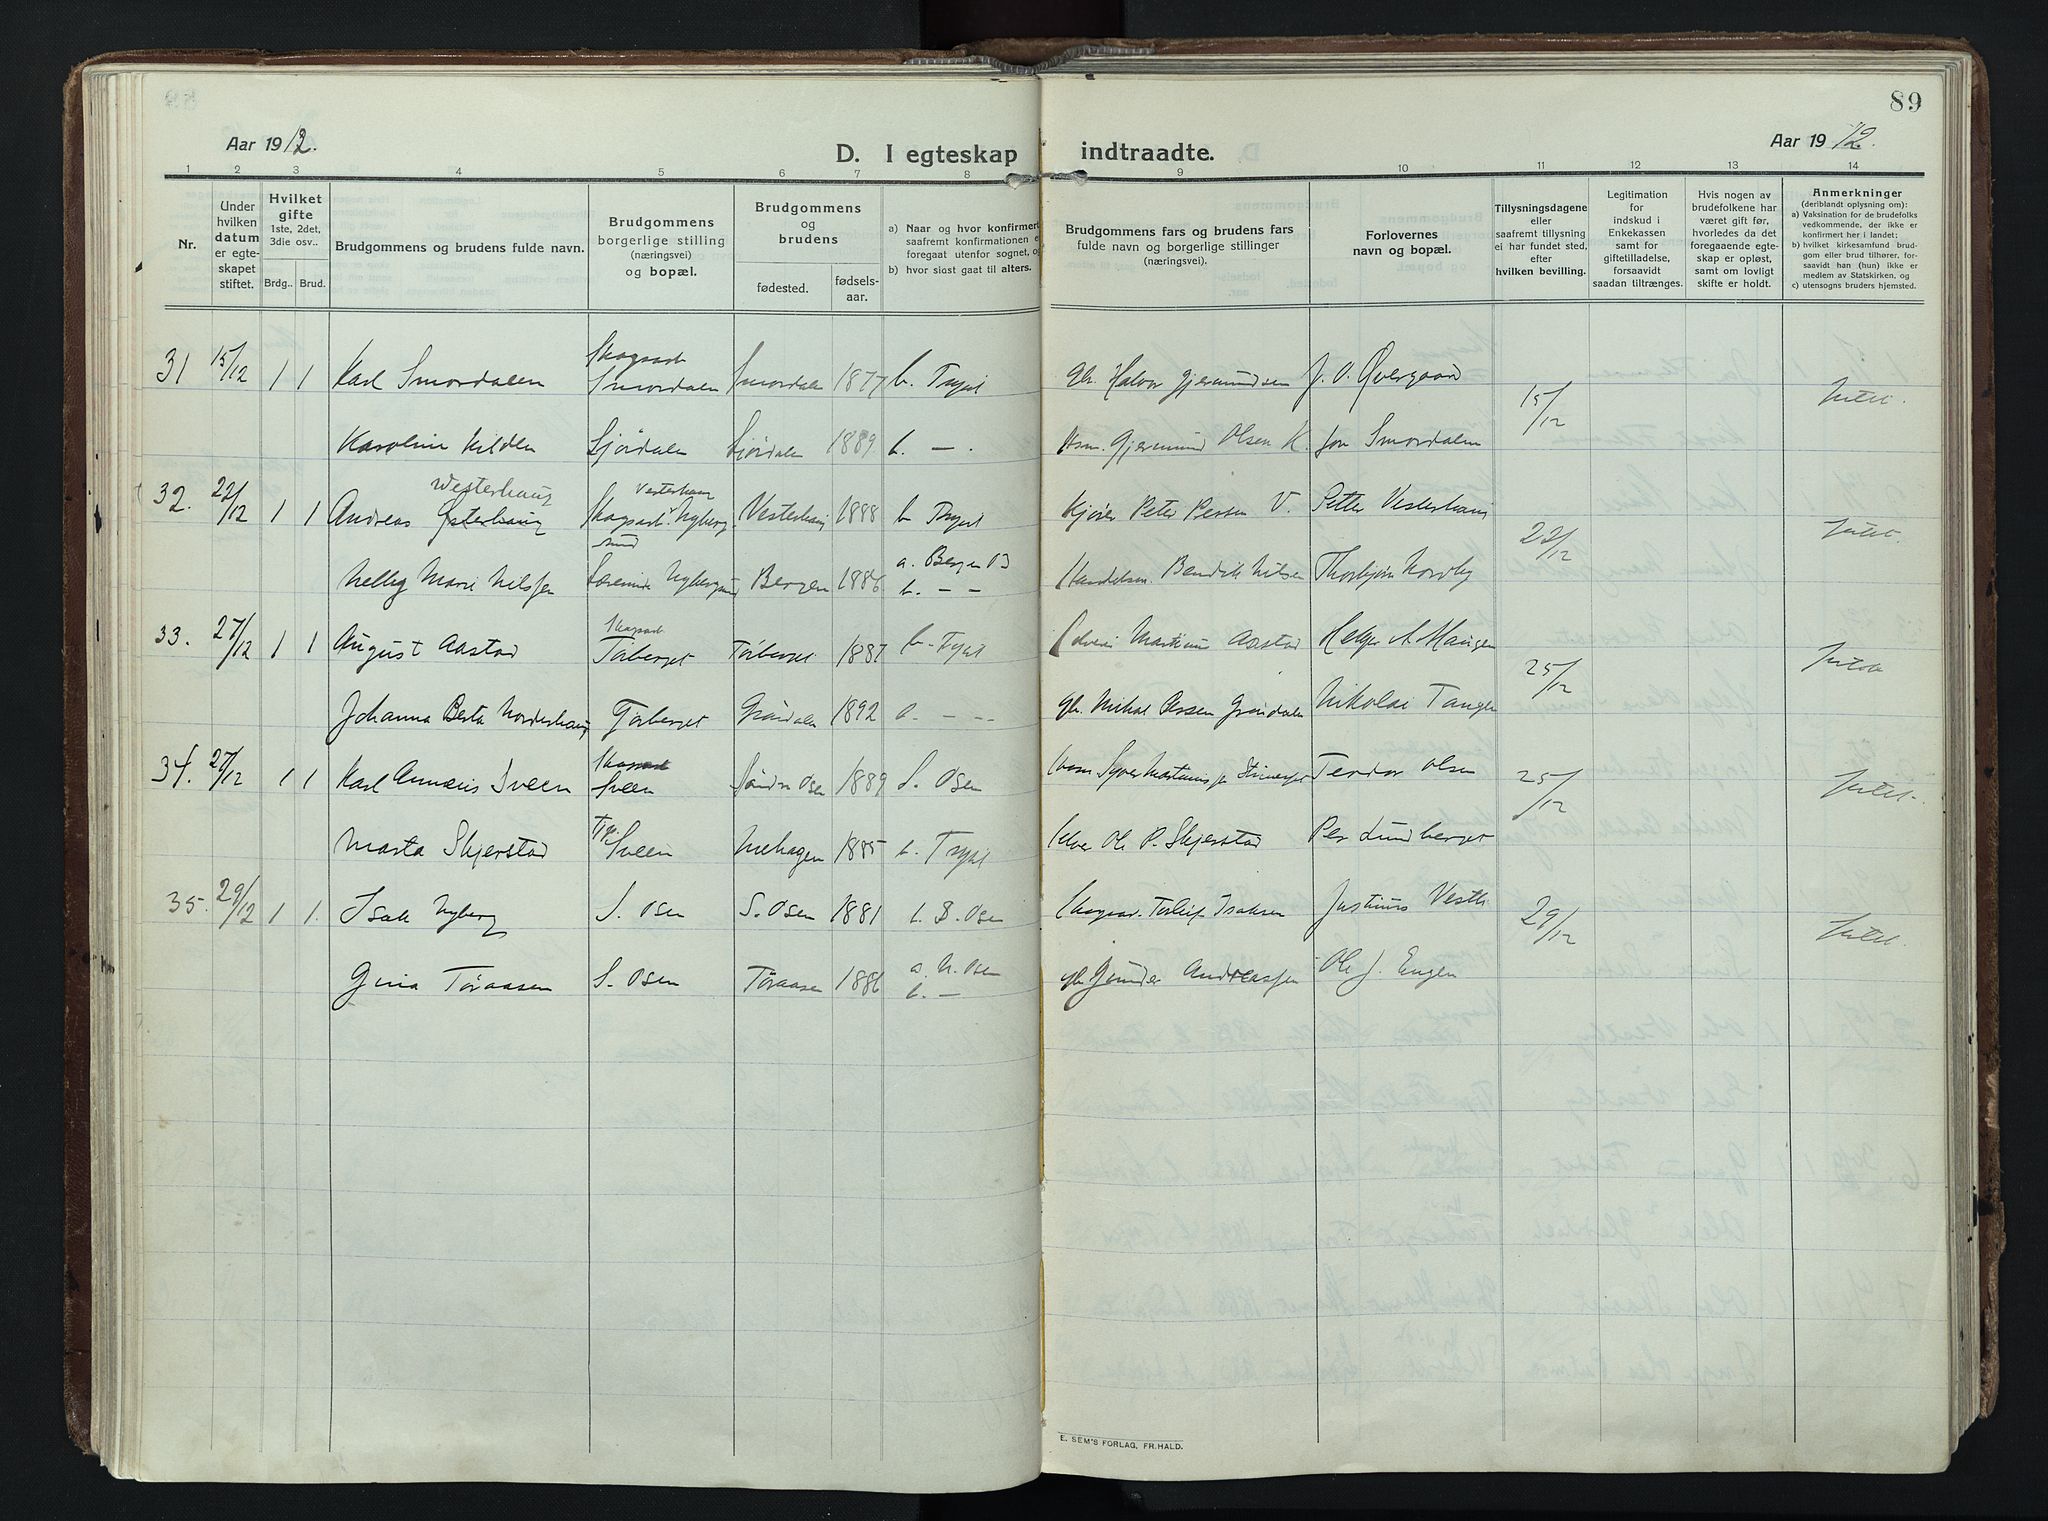 89
Aar 1912.
D. I egteskap indtraadte.
Aar 1912.
1 2 3 4 5 6 7 8 9 10 11 12 13 14
Nr.
Under hvilken datum er egteskapet stiftet.
Hvilket gifte 1ste, 2det, 3die osv..
Brdg.. Brud.
Brudgommens og brudens fulde navn.
Brudgommens borgerlige stilling (næringsvei) og bopæl.
Brudgommens og brudens
fødested.
fødselsaar.
a) Naar og hvor konfirmert saafremt konfirmationen e foregaat utenfor sognet, og
b) hvor sidst gaat til alters.
Brudgommens fars og brudens fars fulde navn og borgerlige stillinger (næringsvei).
Forlovernes navn og bopæl.
Tillysningsdagene eller saafremt tillysning ei har fundet sted, efter hvilken bevilling.
Legitimation for indskud i Enkekassen samt for giftetilladelse, forsaavidt saadan tiltrænges.
Hvis nogen av brudefolkene har været gift før, hvorledes da det foregaaende egteskap er opløst, samt om lovligt skifte er holdt.
Anmerkninger (deriblandt oplysning om): a) Vaksination for de brudefolks vedkommende, der ikke er konfirmert her i landet; b) hvilket kirkesamfund brudgom eller brud tilhører, forsaavidt han (hun) ikke er medlem av Statskirken; c) utensogns bruders hjemsted.
31 15/12 1 1 Karl Smordalen Skogsarb Smordalen Smordalen 1877 b. Trysil Gbr. Halvor Gjermundsen J. O. Øvergaard 15/12
Karoline Kilden Ljørdalen Ljørdalen 1889 b. — Hsm. Gjermund Olsen K. Jon Smordalen
32. 22/12 1 1 Andreas Westerhaug Skogsarb. Nybergsund Vesterhaug 1888 b Trysil Kjører Peter Persen V. Petter Vesterhaug 22/12
Nelly Marie Nilssen Nybergsund Bergen 1886 a. Bergen b. — — Handelsm. Bendik Nilsen Thorbjørn Nordby
33. 27/12 1 1 August Aastad Skogsarb Tørberget Tørberget 1887 b. Trysil Martinus Aastad Helge A. Haugen 25/12
Johanna Berta Norderhaug Tørberget Grøndalen 1892 — — gbr. Mikal Persen Grøndalen Nikolai Tangen
34. 27/12 1 1 Karl Sveen Skogsarb Sveen Søndre Osen 1889 S. Osen Syver Martinus Teodor Olsen 25/12
Marta Skjerstad Sveen Nehagen 1885 b. Trysil Ole P. Skjerstad Per Lundberget
35. 29/12 1 1. Isak Nyberg S. Osen S. Osen 1881 Osen Skogsar. Torleif Isaksen Justinus Vestli 29/12
Gina Tøraasen S. Osen Tøraasen 1886 a. N. Osen b. — gbr. Gunder Andreassen Ole J. Engen
E. SEM'S FORLAG, FR.HALD.